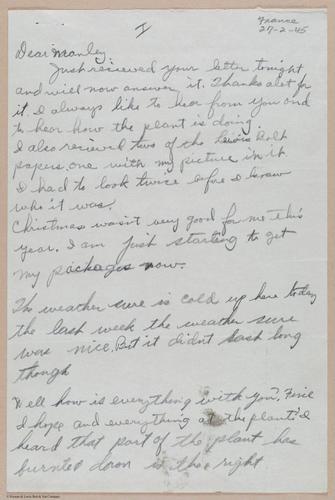 I
France
27-2-45
Dear Manley
Just recieved your letter tonight
and will now answer it. Thanks alot for
it. I always like to hear from you and
to hear how the plant is doing.
I also recieved two of the Lewis Bolt
papers, one with my picture in it
I had to look twice before I knew
who it was.
Christmas wasn't very good for me this
year. I am just starting to get
my packages now.
The weather sure is cold up here today
the last week the weather sure
was nice. But it didn't last long
though
Well how is everything with you? Fine
I hope and everything at the plant? I
heard that part of the plant has
burnted down is the right